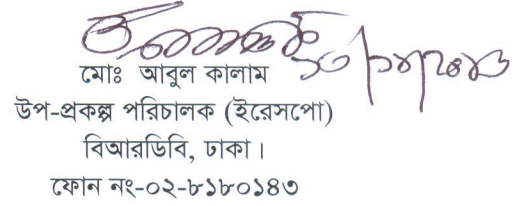 মোঃ আবুল কালাম
উপ-প্রকল্প পরিচালক (ইরেসপো)
বিআরডিবি, ঢাকা।
ফোন নং-০২-৮১৮০১৪৩